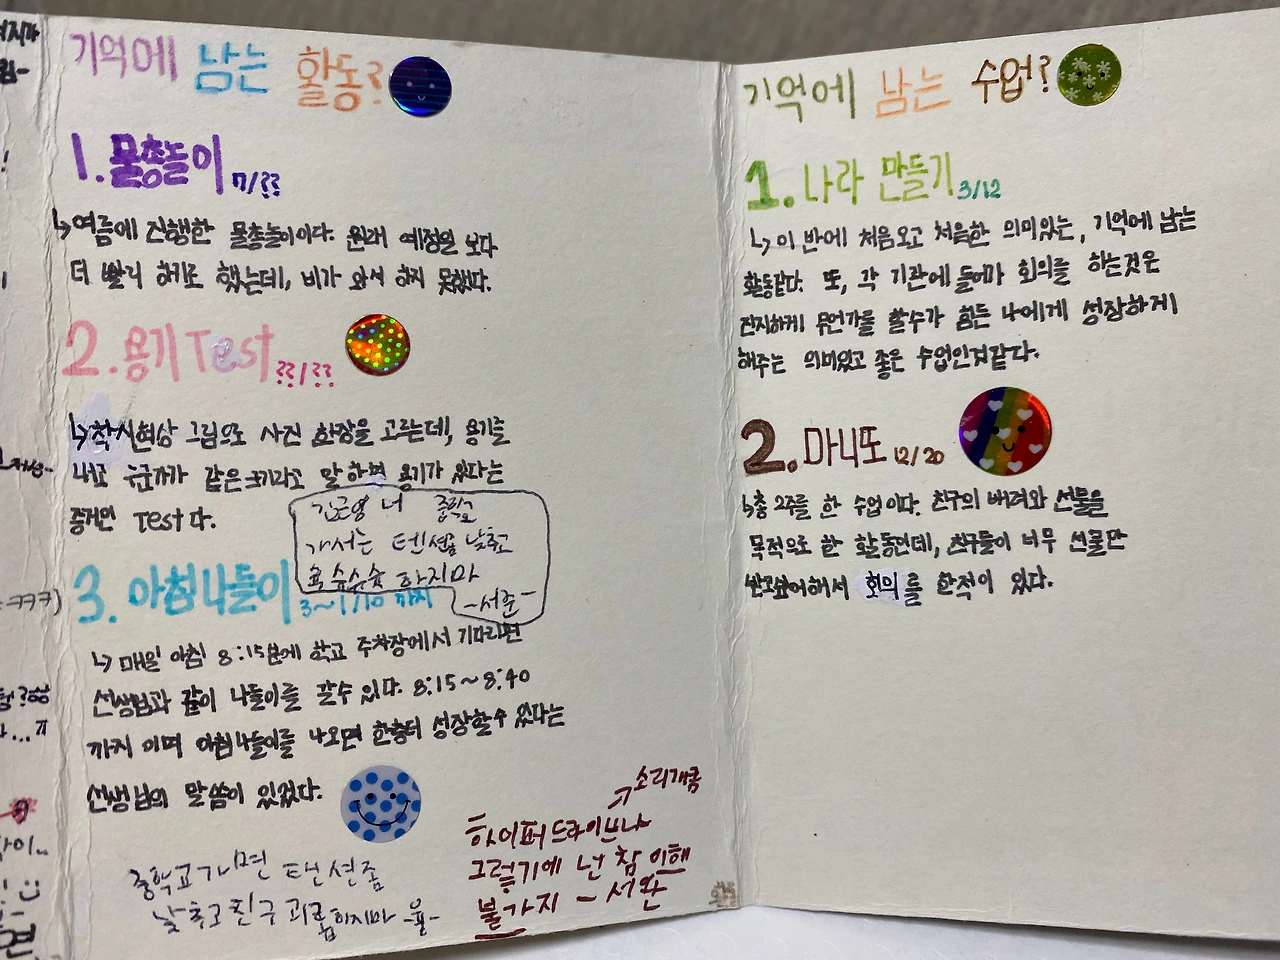 기억에 남는 활동?
1. 물총놀이 7/??
↳여름에 진행한 물총놀이이다. 원래 예정일 보다
더 빨리 하기로 했는데, 비가 와서 하지 못했다.
2. 용기 Test ??/??
↳착시현상 그림으로 사진 한장을 고르는데, 용기를
내고 누군가가 같은크기라고 말하면 용기가 있다는
증거인 Test다.
김근영 너 중학교
가서는 텐션좀 낮추고
욕 수수슉 하지마
-서준-
3. 아침나들이 3~1/10 까지
↳매일 아침 8:15분에 학교 주차장에서 기다리면
선생님과 같이 나들이를 갈수 있다. 8:15~8:40
까지 이며 아침나들이를 나오면 한층더 성장할수 있다는
선생님의 말씀이 있었다.
중학교가면 텐션좀
낮추고 친구 괴롭히지마 -율-
소리개콤
하이퍼드라이브나
그렇기에 넌 참 이해
불가지 - 서완
기억에 남는 수업?
1. 나라 만들기 3/12
↳이 반에 처음오고 처음한 의미있는, 기억에 남는
활동같다. 또, 각 기관에 들어가 회의를 하는것은
진지하게 무언가를 할수가 힘든 나에게 성장하게
해주는 의미있고 좋은 수업인것같다.
2. 마니또 12/20
↳총 2주를 한 수업이다. 친구의 배려와 선물을
목적으로 한 활동인데, 친구들이 너무 선물만
바래서 회의를 한적이 있다.